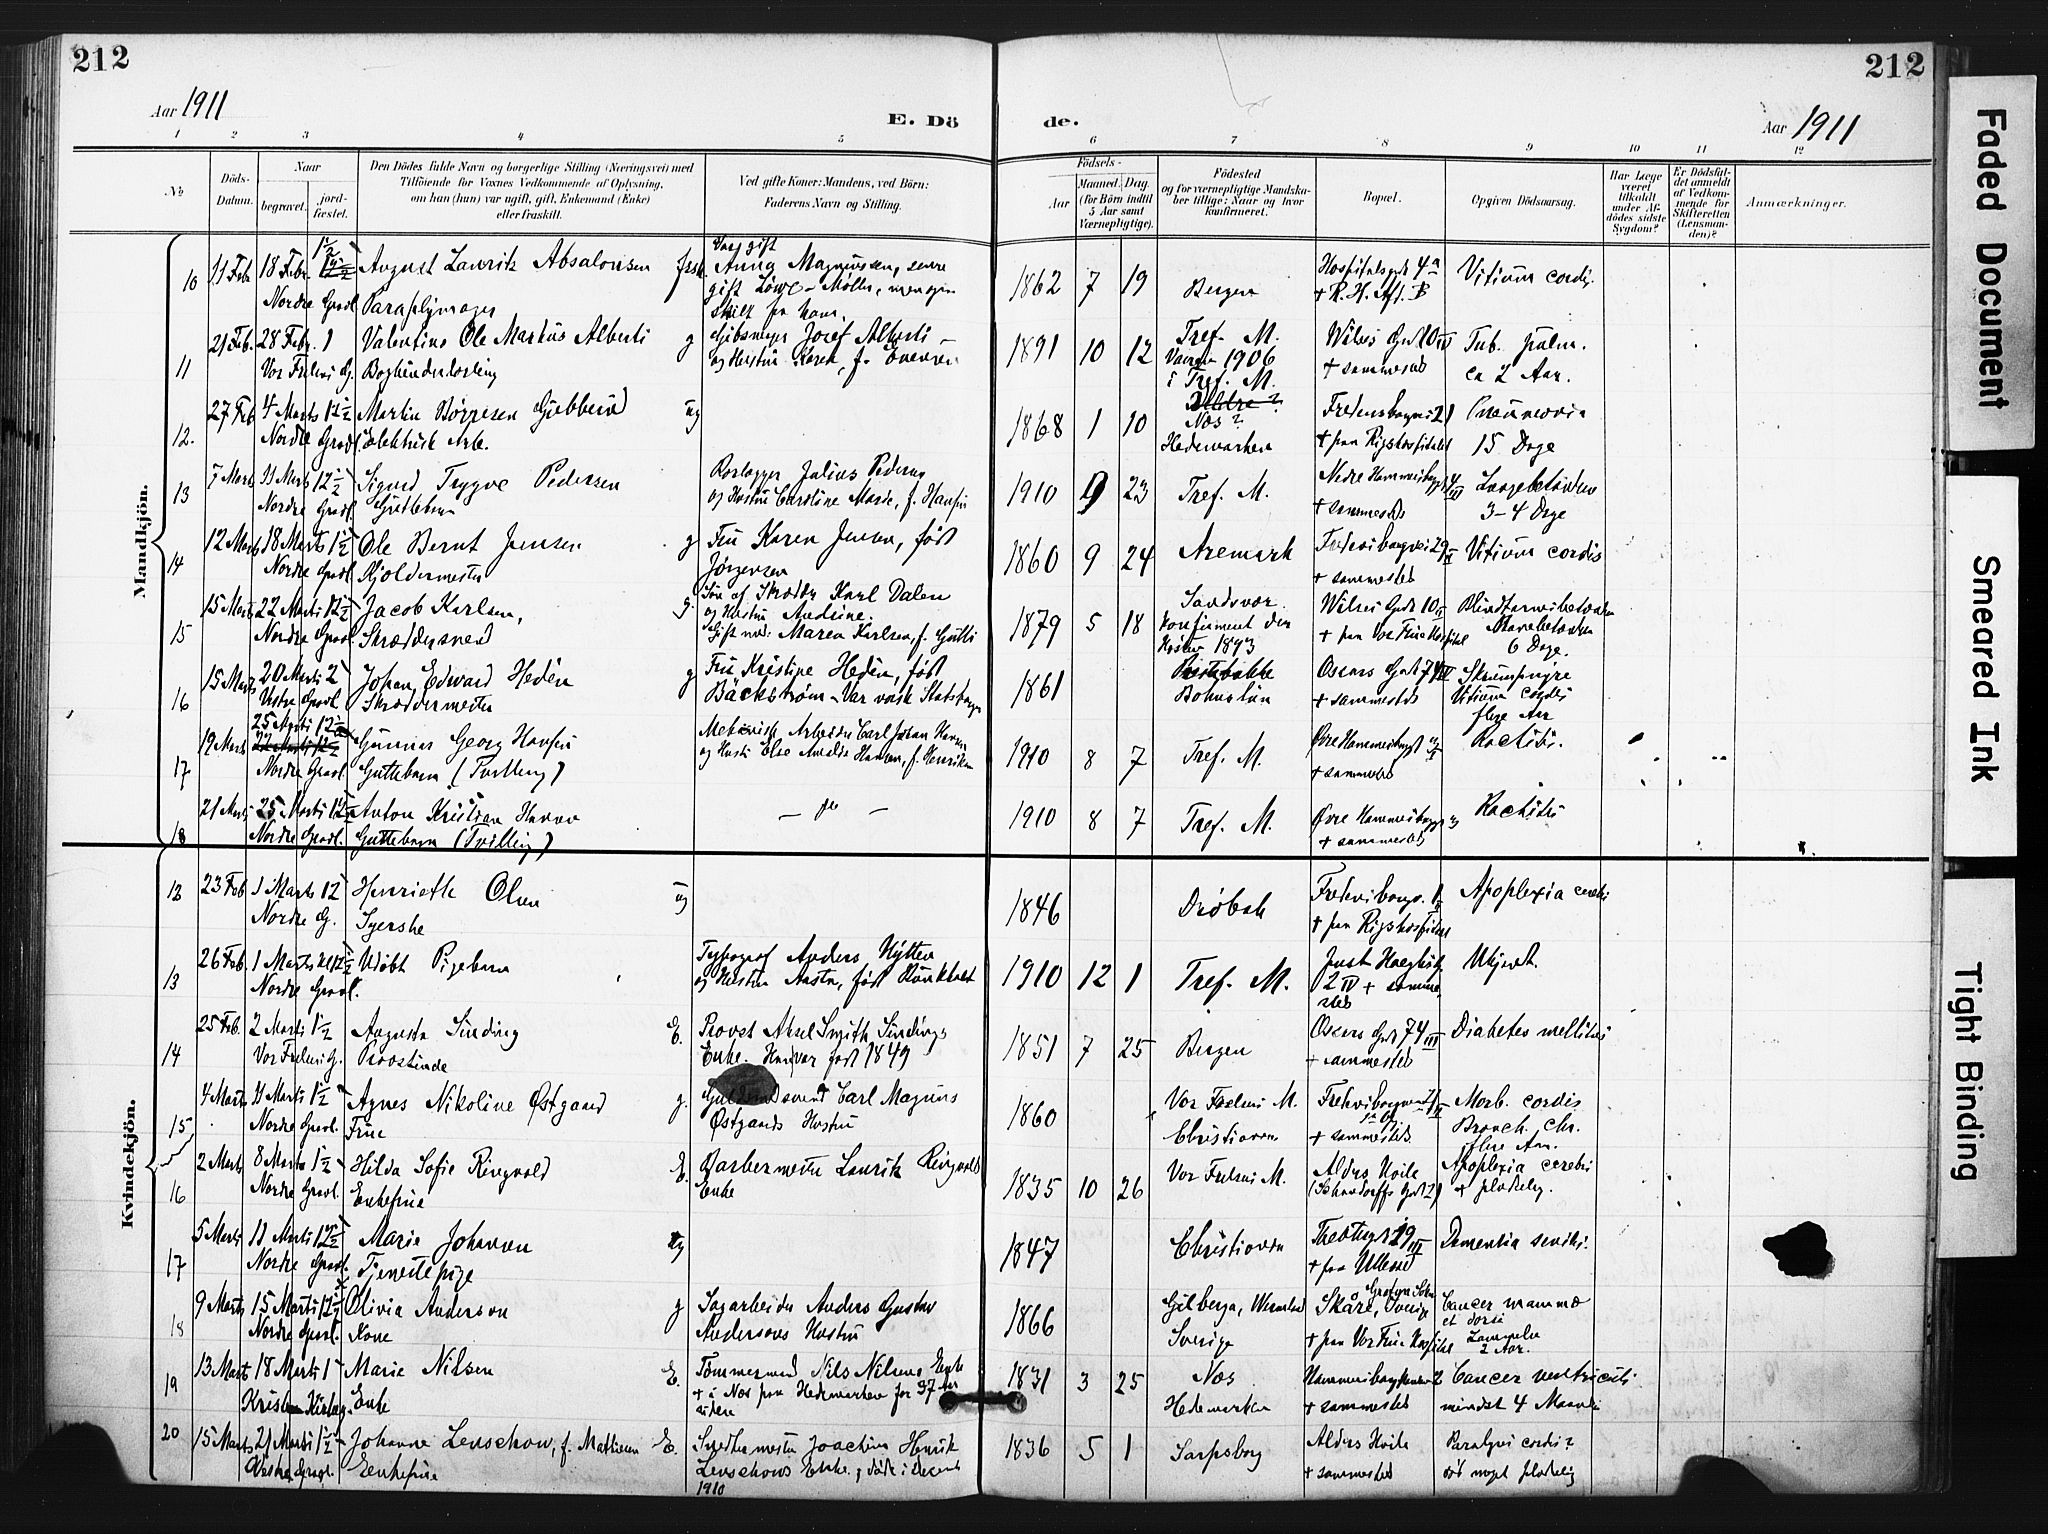 212
212
Aar 1911
E. Dö
de.
Aar 1911
1 2 3 4 5 6 7 8 9 10 11 12
No
Döds-Datum.
Naar
begravet.
jord-fæstet.
Den Dödes fulde Navn og borgerlige Stilling (Næringsvei) med
Tilföiende for Voxnes Vedkommende af Oplysning,
om han (hun) var ugift, gift, Enkemand (Enke)
eller fraskilt.
Ved gifte Koner: Mandens, ved Börn:
Faderens Navn og Stilling.
Födsels-
Aar
Maaned. Dag.
(for Börn indtil
5 Aar samt
Værnepligtige).
Födested
og for værnepligtige Mandska-
ber tillige: Naar og hvor
konfirmeret.
Bopæl.
Opgiven Dödsaarsag.
Har Læge
været
tilkaldt
under Af-
dödes sidste
Sygdom?
Er Dödsfal-
det anmeldt
af Vedkom-
mende for
Skifteretten
(Lensman-
den)?
Anmærkninger.
Mandkjön.
10 11 Feb 18 Febr. August Lauritz Absalonsen frsk. Var gift Anna Magnussen, senere 1862 7 19 Bergen Hospitalsgd 4 Vitium cordis
Nordre Gravl. Paraplymager gift Löwe-Möller, men igjen skilt fra ham. + R. H. Afd. B
11 21 Feb. 28 Febr. 1 Valentine Ole Markus Alberti g Josef Alberti 1891 10 12 Tref. M. Wilses Gd 10 III Tub. pulm.
Vor Frelsers G. Bogbinderlærling og Hustru Karen, f. 1906 i Tref. M. + sammesteds ca 2 Aar.
12. 27 Feb 4 Marts 1 1/2 Martin Börresen ug 1868 1 10 Nes? Pneumonia
Nordre Gravl. Elektrisk Arb. Hedemarken + paa Rigshospitalet 15 Dage
13 7 Marts 11 Marts 12 1/2 Sigurd Trygve Pedersen Julius Pedersen 1910 9 23 Tref. M. Nedre Hammersborgd 4 III Lungebetændelse
Nordre Gravl. Guttebarn og Hustru Caroline Marie, f. Hansen + sammesteds 3-4 Dage
14 12 Marts 18 Marts 1 1/2 Ole Bernt Jensen g Fru Karen Jensen, född 1860 9 24 Aremark Vitium cordis
Nordre Gravl. Jörgensen + sammested
15 15 Marts 22 Marts 12 1/2 Jacob Karlsen, g. Sön af Skrædder Karl Dalen 1879 5 18 Sandsvær Wilses Gade 10 Blindtarmsbetændelse
Nordre Gravl. Skræddersvend og Hustru Andrine. Gift med: Maren Karlsen, f. konfirmeret der Hösten 1893 + paa Vor Frue Hospital 6 Dage.
16 15 Marts 20 Marts 2 Johan Edward Hedén g Fru Kristine Hedén, född 1861 Bohuslän Oscars Gd 74 III Skrumpnyre
Vestre Gravl. Skræddermester Bäckström - Var svensk Statsborger + sammesteds Vitium cordis flere Aar
17 19 Marts 25 Marts 12 1/2 Gunnar Georg Hansen Mekanisk Arbeider Carl Johan Hansen 1910 8 7 Tref. M. Øvre Hammersborgd Rachitis.
Nordre Gravl. Guttebarn (Tvilling) og Hustru Else Amalie Hansen, f. Henriksen + sammested
18 21 Marts 25 Marts 12 1/2 Anton Kristian Hansen 1910 8 7 Tref. M. Øvre Hammersborgd Rachitis
Nordre Gravl. Guttebarn (Tvilling) + sammested
Kvindekjön.
12 23 Feb 1 Marts 12 Henriette Olsen ug 1846 Drøbak Apoplexia cerebri
Nordre G. Syerske + paa Rigshospitalet
13 26 Feb. 1 Marts Udöbt Pigebarn Typograf Anders Hytten 1910 12 1 Tref. M. Ukjendt.
Nordre Gravl. og Hustru Aasta, född 2 IV + sammesteds
14 25 Feb. 2 Marts 1 1/2 Augusta Sinding E. Provst Axel Smith Sindings 1851 7 25 Bergen Oscars Gade 74 III Diabetes mellitus
Vor Frelsers G. Provstinde Enke. Han var född 1849 + sammested
15 4 Marts 11 Marts 1 1/2 Agnes Nikoline Østgaard g. Guldsmedsvend Carl Magnus 1860 Vor Frelsers M. Morb. cordis
Nordre Gravl. Frue Østgaards Hustru Christiania + sammesteds. Bronch. chr. flere Aar.
16 2 Marts 8 Marts 1 1/2 Hilda Sofie Ringvold E. Barbermester Lauritz Ringvolds 1835 10 26 Vor Frelsers M. Alders Hvile Apoplexia cerebri
Nordre Gravl. Enkefrue Enke (Schandorffs Gd 2) + pludselig.
17 5 Marts 11 Marts 12 1/2 Marie Johansen ug 1847 Christiania Dementia senilis.
Nordre Gravl. Tjenestepige + paa Ullevaal
18 9 Marts 15 Marts 12 1/2 Olivia Anderson g Sagarbeider Anders Gustav 1866 Gilberga, Wermland Skåre, Sverige Cancer mammæ et dorsi
Nordre Gravl. Kone Andersons Hustru Sverige + paa Vor Frue Hospital 2 Aar.
19 13 Marts 18 Marts 1 Marie Nilsen E. Tömmermand Nils Nilsens Enke 1831 3 25 Nes Cancer ventriculi
Enke + i Nes paa Hedemarken for 37 Aar siden Hedemarken + sammested mindst 4 Maaneder
20 15 Marts 21 Marts 1 1/2 Johanne Lenschow, f. Mathiesen E. Joachim Henrik 1836 5 1 Sarpsborg Alders Hvile Paralysis cordis?
Vestre Gravl. Enkefrue Lenschows Enke, döde i Decemb 1910 + sammested död meget pludselig
Faded Document
Smeared Ink
Tight Binding